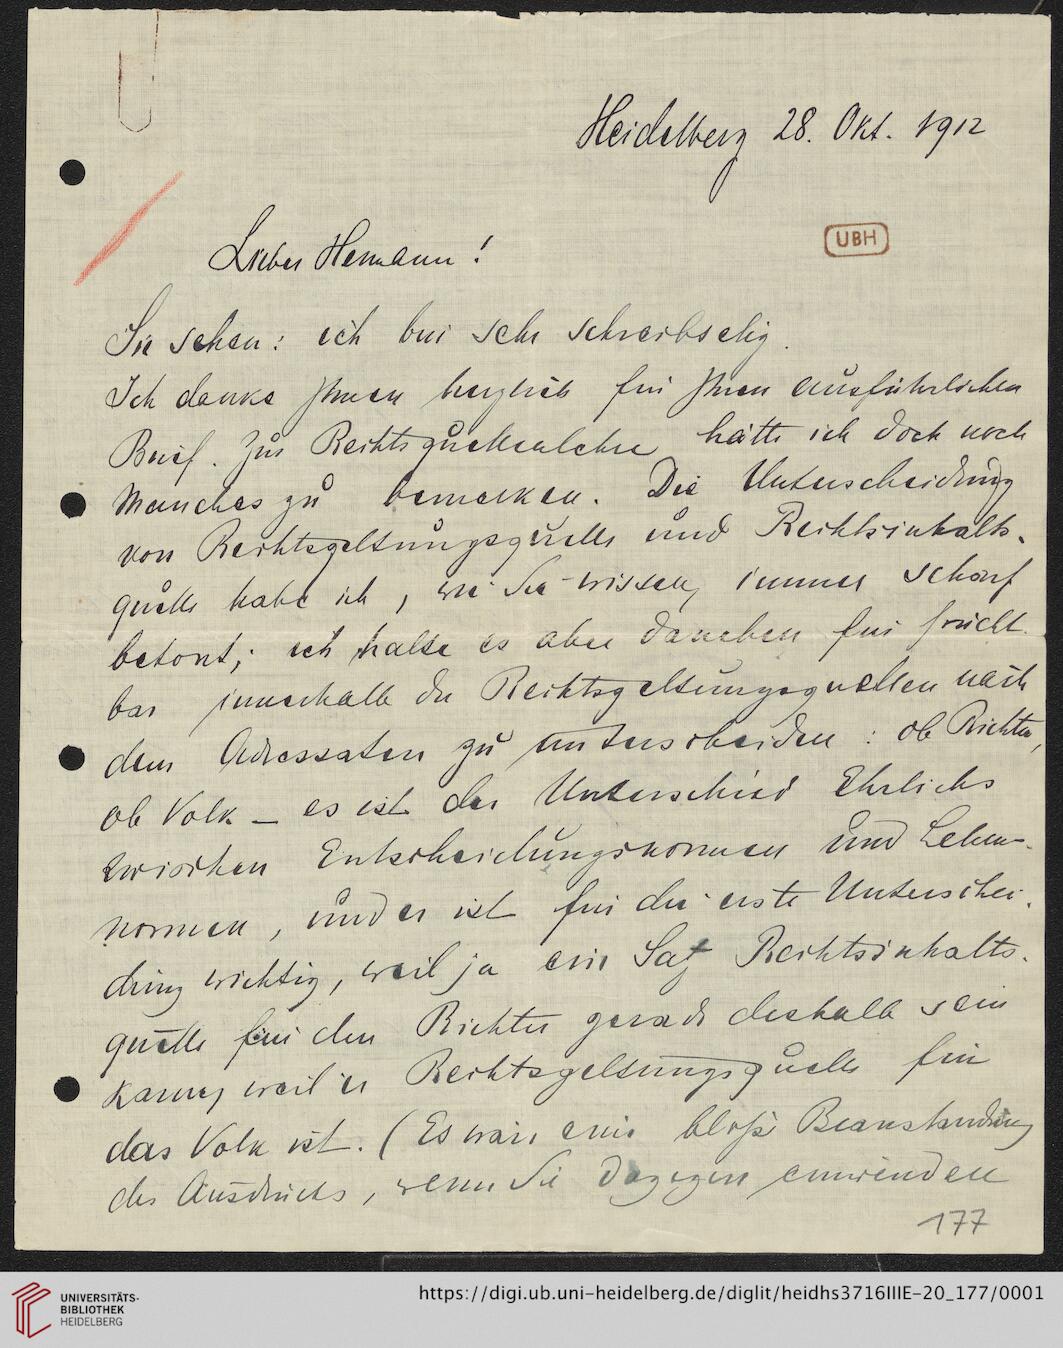 Heidelberg 28. Okt. 1912
UBH
Lieber Hermann!
Sie sehen: ich bin sehr schreibselig.
Ich danke Ihnen herzlich für Ihren ausführlichen
Brief. Zur Rechtsquellenlehre hätte ich doch noch
Manches zu bemerken. Die Unterscheidung
von Rechtsgeltungsquelle und Rechtsinhalts-
quelle habe ich, wie Sie wissen, immer scharf
betont; ich halte es aber daneben für frucht-
bar innerhalb der Rechtsgeltungsquellen nach
dem Adressaten zu unterscheiden: ob Richter,
ob Volk – es ist der Unterschied Ehrlichs
zwischen Entscheidungsnormen und Lebens-
normen, und er ist für die erste Unterschei-
dung wichtig, weil ja ein Satz Rechtsinhalts-
quelle für den Richter gerade deshalb sein
kann, weil er Rechtsgeltungsquelle für
das Volk ist. (Es wäre eine bloße Beanstandung
des Ausdrucks, wenn Sie dagegen einwenden
177
UNIVERSITÄTS-
BIBLIOTHEK
HEIDELBERG
https://digi.ub.uni-heidelberg.de/diglit/heidhs3716IIIE-20_177/0001